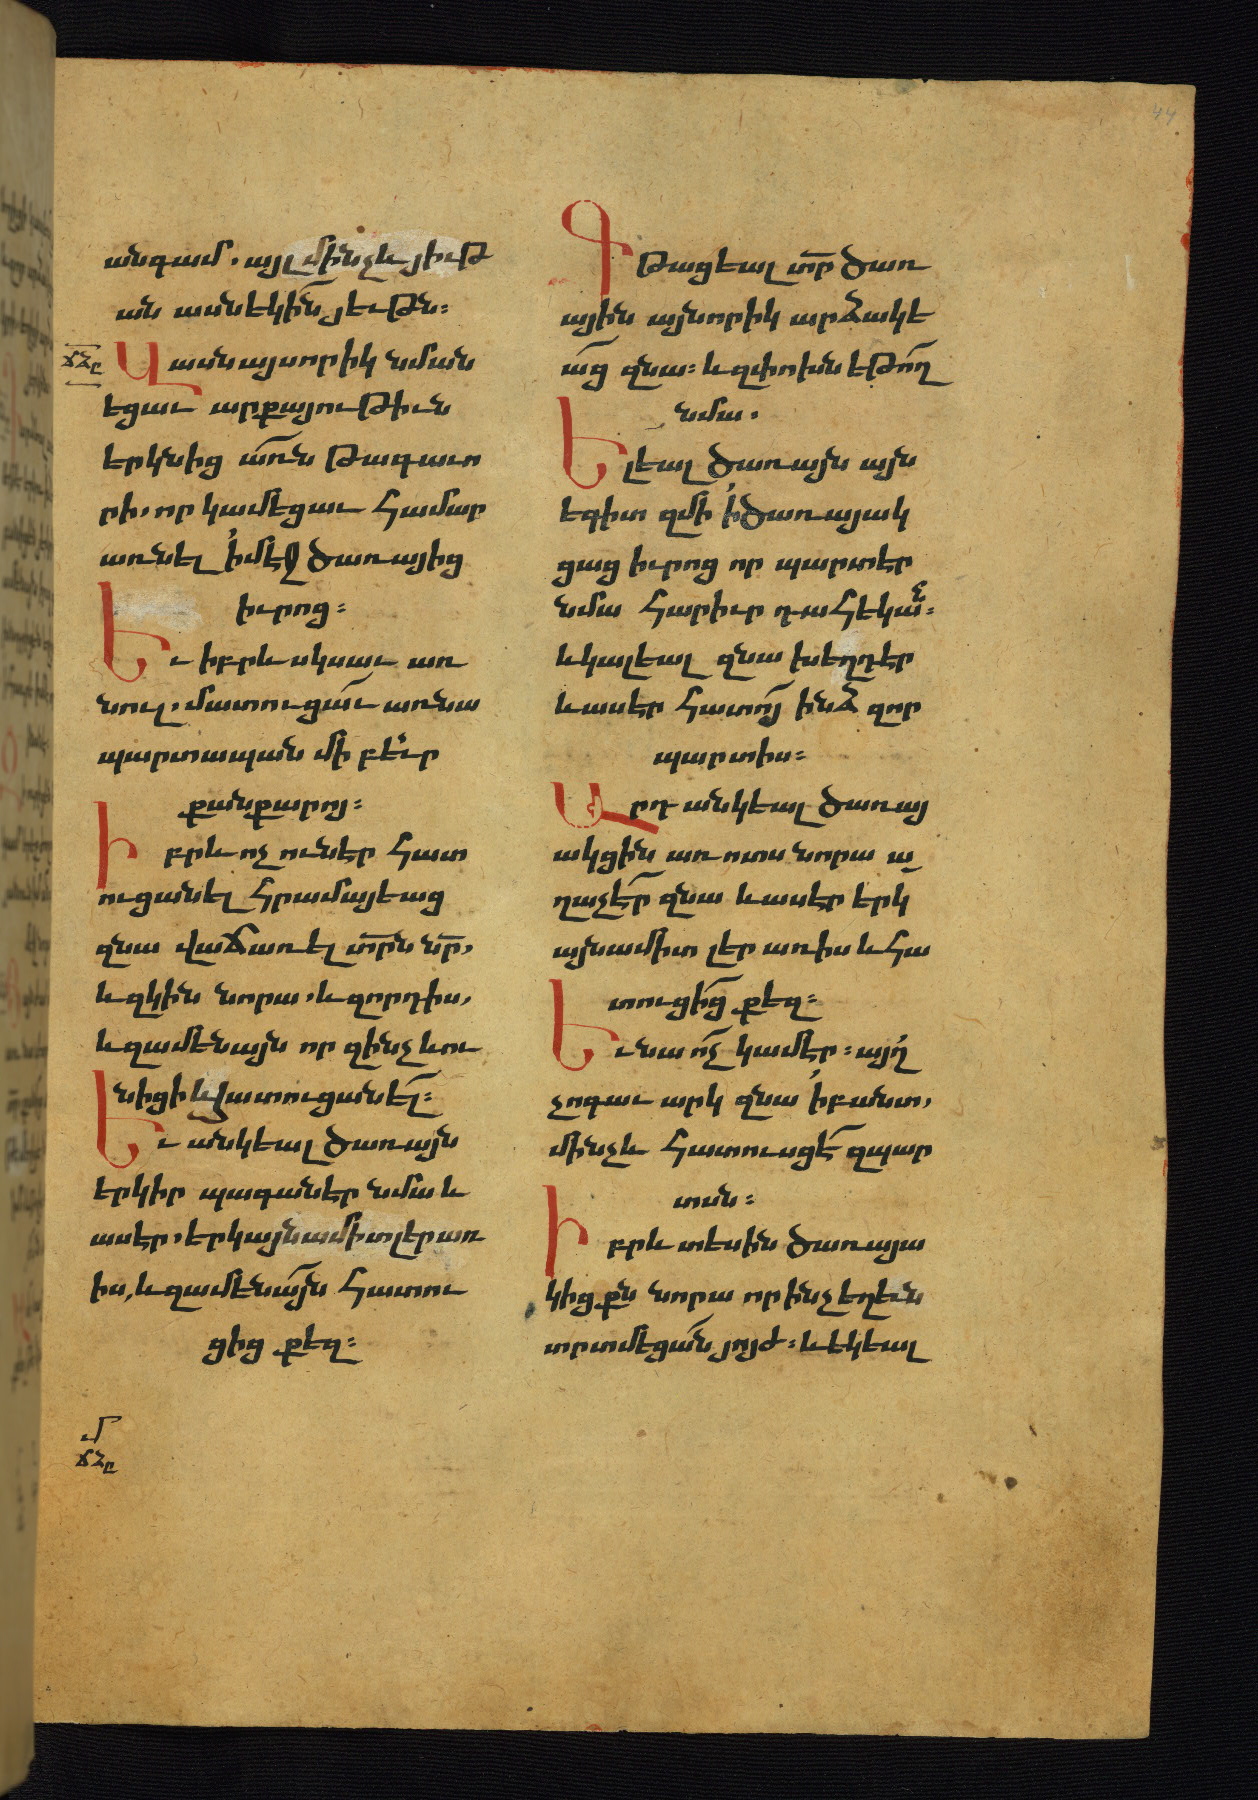 անգամ. այլ մինչև յիւթ
ան ասնեկին յեւթն։
ՃՁԸ
Վասն այսորիկ նման
եցաւ արքայութիւն
երկնից առն թագաւո
րի, որ կամեցաւ համար
առնել ի մէջ ծառայից
իւրոց։
Եւ իբրև սկսաւ առ
նուլ. մատուցաւ առ նա
պարտապան մի բեւր
քանքարոյ։
Իբրև ոչ ունէր հատ
ուցանել հրամայեաց
զնա վաճառել տրն նր,
և զկին նորա, և զորդիս,
և զամենայն որ զինչ ևու
նիցի և հատուցանել։
Եւ անկեալ ծառայն
երկիր պագանէր նմա և
ասէր, երկայնամիտ լեր առ
իս, և զամենայն հատու
ցից քեզ։
Մ
ՃՁԸ
Գթացեալ տր ծառ
ային այնորիկ արձակե
աց զնա։ և զփոխն եթող
նմա.
Ելեալ ծառայն այն
եգիտ զմի ի ծառայակ
ցաց իւրոց որ պարտէր
նմա հարիւր դահեկան։
և կալեալ զնա խեղդէր
և ասէր հատոյ ինձ զոր
պարտիս։
Արդ անկեալ ծառայ
ակցին առ ոտս նորա ա
ղաչէր զնա և ասէր երկ
այնամիտ լեր առ իս և հա
տուցից քեզ։
Եւ նա ոչ կամէր։ այղ
չոգաւ արկ զնա ի բանտ,
մինչև հատուսցէ զպար
տսն։
Իբրև տեսին ծառայա
կիցքն նորա որ ինչ եղևն
տրտմեցան յոյժ։ և եկեալ